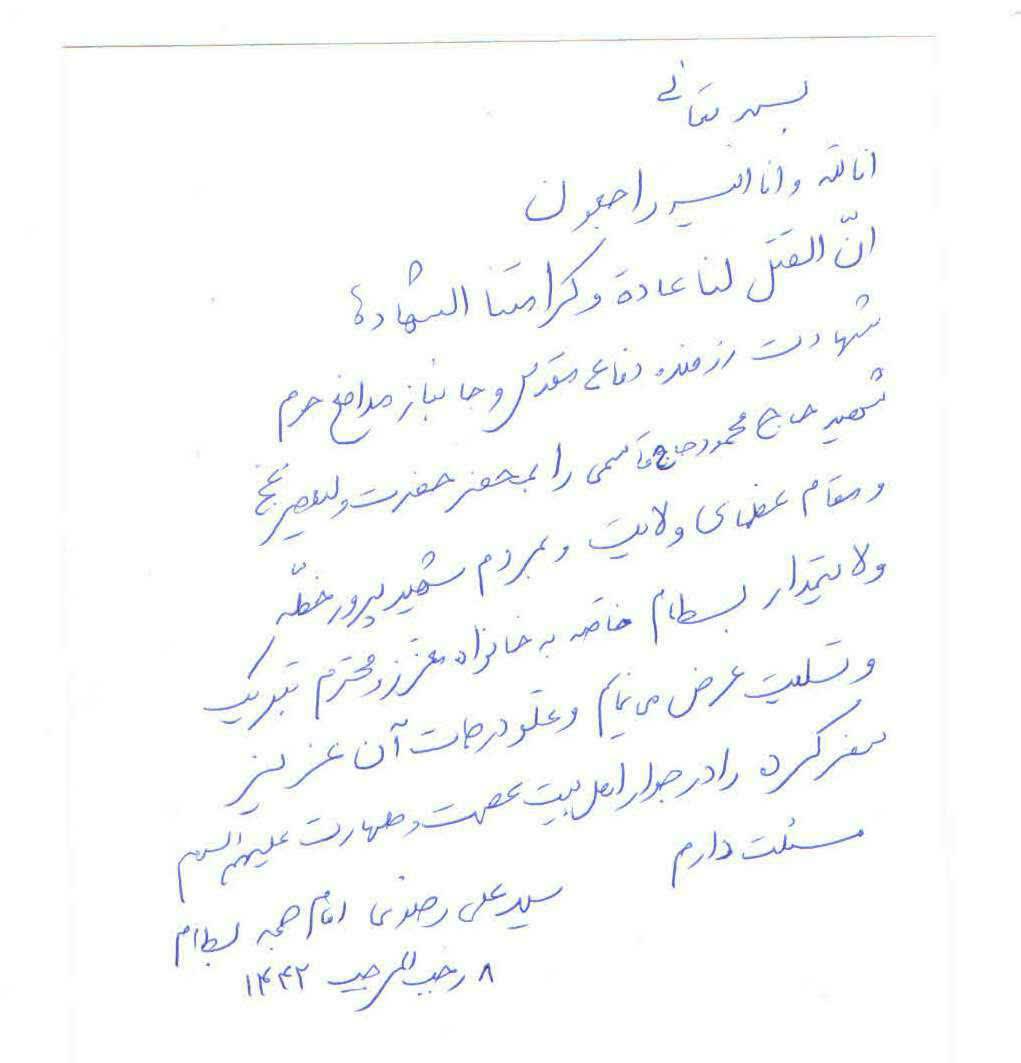 بسمه تعالی
انا لله و انا الیه راجعون
انّ القتل لنا عادة و کرامتنا الشهادة
شهادت رزمنده دفاع مقدس و جانباز مدافع حرم
شهید حاج محمود حاج قاسمی را بمحضر حضرت ولیعصر عج
و مقام عظمای ولایت و بمردم شهید پرور خطّه
ولایتمدار بسطام خاصه به خانواده معزز و محترم تبریک
و تسلیت عرض می نمایم و علو درجات آن عزیز
سفر کرده را در جوار اهل بیت عصمت و طهارت علیهم السلام
مسئلت دارم
سید علی رضوی امام جمعه بسطام
۸ رجب المرجب ۱۴۴۲